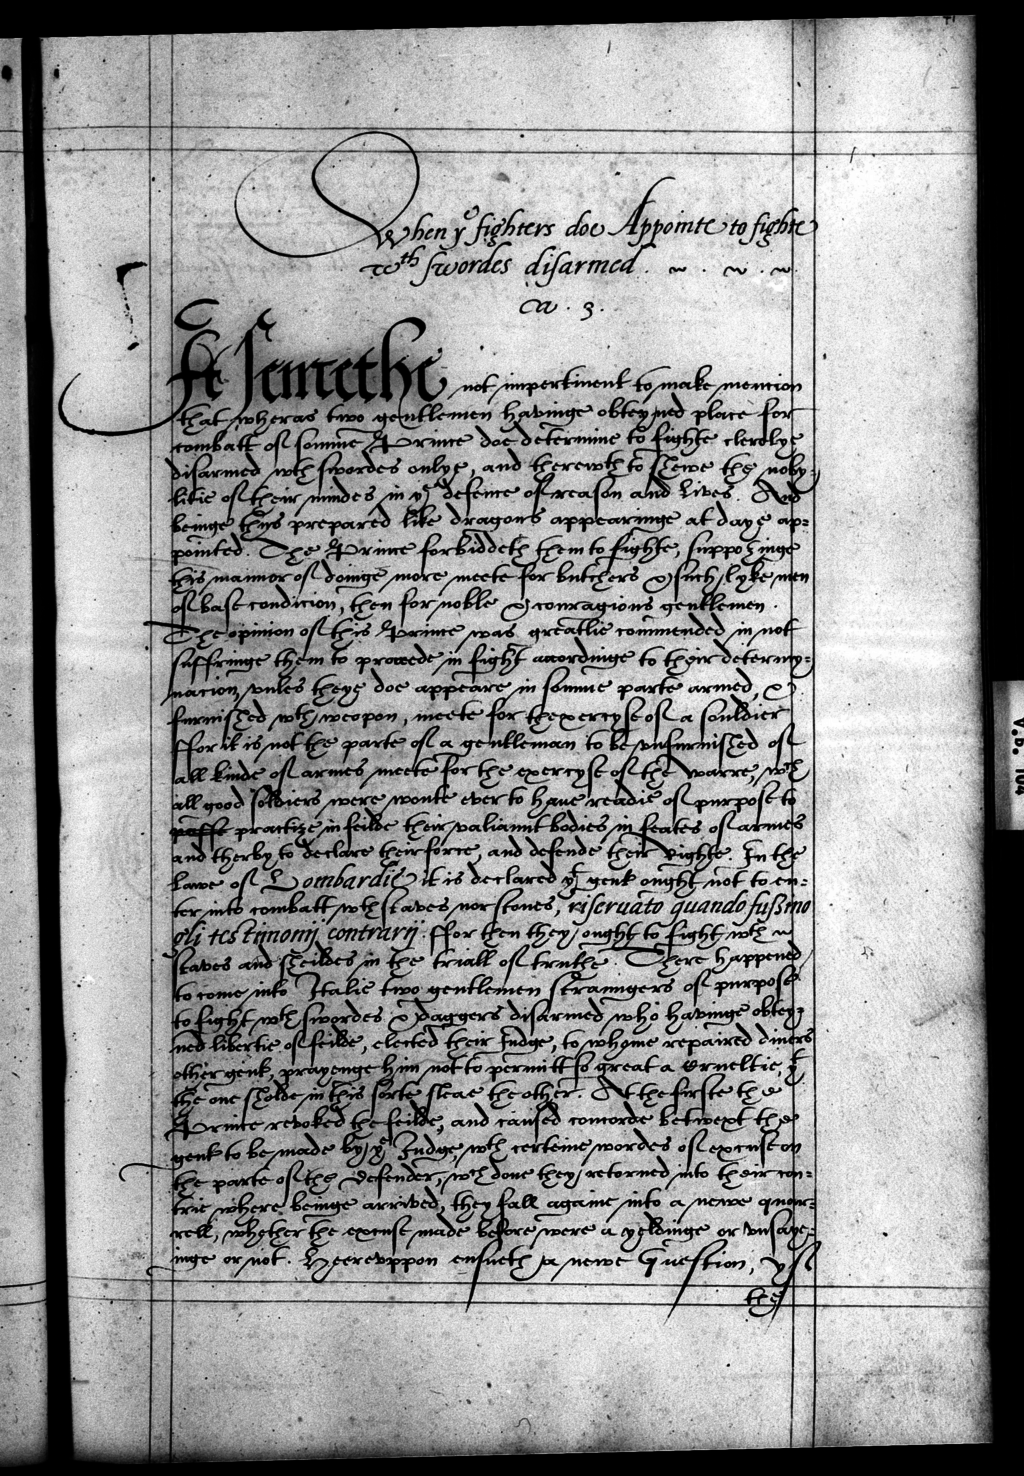 When yͤ fighters doe Appointe to fighte
wᵗʰ swordes disarmed.
Ca. 3.
It semethe not impertinent to make mencion
that wheras two gentlemen havinge obteyned place for
combatt of somme Prince doe determine to fighte clerelye
disarmed wth swordes onlye, and therewth to shewe the noby-
litie of their mindes in yͤ defence of reason and lives. And
beinge thus prepared like dragons appearinge at daye ap-
pointed. The Prince forbiddeth them to fighte, supposinge
this mannor of doinge more meete for butchers & such lyke men
of base condicion, then for noble & couragious gentlemen.
The opinion of this Prince was greatlie commended in not
suffringe them to proceede in fight accordinge to their determy-
nacion, vnles theye doe appeare in somme parte armed, &
furnished wth weopon, meete for thexercyse of a souldier
ffor it is not the parte of a gentleman to be vnfurnished of
all kinde of armes meete for the exercyse of the warre, wch
all good soldiers were wonte ever to haue readie of purpose to
practize in feilde their valiaunt bodies in feates of armes
and therby to declare their force, and defende their righte. In the
Lawe of Lombardie it is declared yt gent ought not to en-
ter into combatt wth staves nor stones, riseruato quando fussino
gli testimonij contrarij. ffor then they ought to fight wth
staves and sheildes in the triall of truthe. There happened
to come into Italie two gentlemen straungers of purpose
to fight wth swordes & daggers disarmed who havinge obtey-
ned libertie of feilde, elected their Judge, to whome repaired divers
other gent, prayenge him not to permitt so great a crueltie, yt
the one sholde in this sorte sleae the other. At the firste the
Prince revoked the feilde, and caused concorde betwext the
gent to be made by yͤ Judge, wth certeine wordes of excuse on
the parte of the defender, wch done they retorned into their con-
trie where beinge arrived, they fall againe into a newe quar-
rell, whether the excuse made before were a yeldinge or vnsaye-
inge or not. Heerevppon ensueth a newe Question, yf
the
V.b. 104